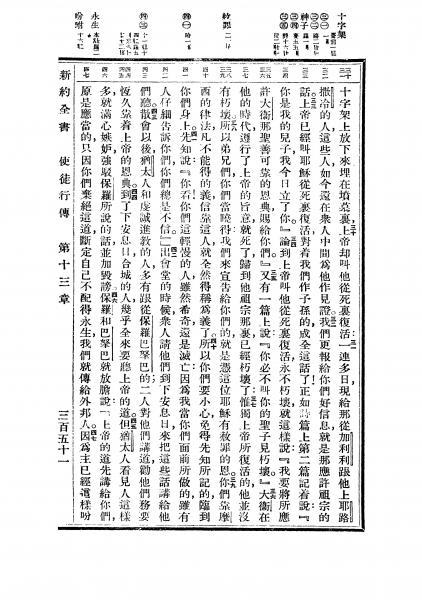 十字架上放下來埋在墳墓裏上帝却叫他從死裏復活一連多日現給那從加利利跟他上耶路
撒冷的人這些人如今還在衆人中間爲他作見證我們更報給你們好信息就是那應許祖宗的
話上帝已經叫耶穌從死裏復活對着我們作子孫的成全這話了正如詩篇上第二篇記着說『
你是我的兒子我今日立了你』論到上帝叫他從死裏復活永不朽壞就這樣說『我要將所應
許大衛那聖善可靠的恩典賜給你們』又有一篇上說『你必不叫你的聖子見朽壞』大衛在
他的時代遵行了上帝的旨意就死了歸到他祖宗那裏已經朽壞了惟獨上帝所復活的他並沒
有朽壞所以弟兄們你們當曉得我們來宣告給你們的就是憑這位耶穌有赦罪的恩你們靠摩
西的律法凡不能得的義信靠這人就全然得稱爲義了所以你們要小心免得先知所記的臨到
你們身上先知說『你看你們這輕慢的人雖然希奇還是滅亡因爲我當你們面前所做的雖有
人仔細告訴你們你們總是不信』出會堂的時候衆人請他們到下安息日來把這些話講給他
們聽散會以後猶太人和虔誠進教的人多有跟從保羅和巴拏巴的二人對他們講道勸他們務要
恆久靠着上帝的恩典到了下安息日合城的人幾乎全來要聽上帝的道但猶太人看見人這樣
多就滿心嫉妒強駁保羅所說的話並加毀謗保羅和巴拏巴就放膽說上帝的道先講給你們
原是應當的只因你們棄絕這道斷定自己不配得永生我們就傳給外邦人因爲主已經這樣吩
新約全書 使徒行傳 第十三章 三百五十一
十字架
神子
赦罪
永生
吩咐